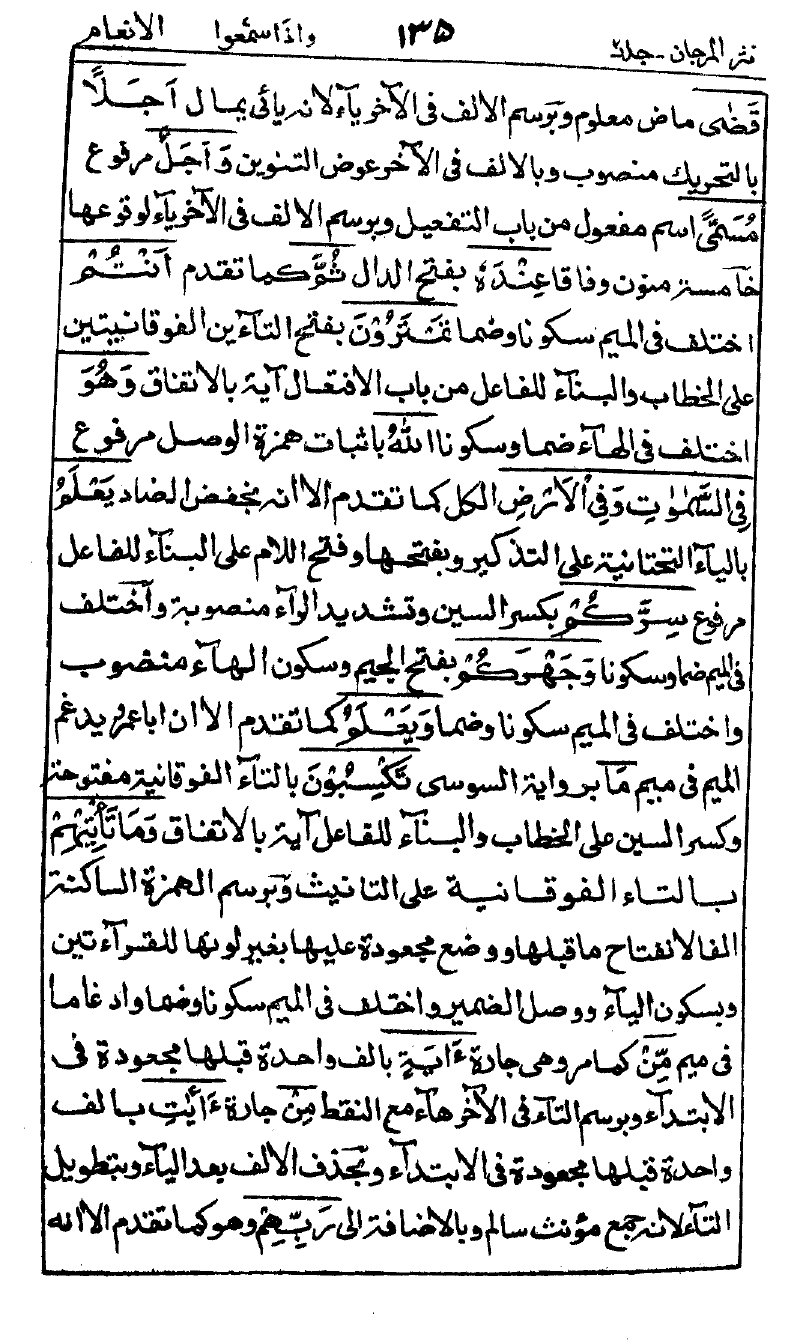 نثر المرجان - جلد٢ ١٣٥ واذا سمعوا الانعام
قَضٰى ماض معلوم وبرسم الالف فى الآخر ياء لانه يائى يمال اَجَلًا
بالتحريك منصوب وبالالف فى الآخر عوض التنوين وَاَجَلٌ مرفوع
مُسَمًّى اسم مفعول من باب التفعيل وبرسم الالف فى الآخر ياء لوقوعها
خامسة منون وفاقا عِنْدَهٗ بفتح الدال ثُمَّ كما تقدم اَنْتُمْ
اختلف فى الميم سكونا وضما تَمْتَرُوْنَ بفتح التآءين الفوقانيتين
على الخطاب والبنآء للفاعل من باب الافتعال آية بالاتفاق وَهُوَ
اختلف فى الهآء ضما وسكونا اللهُ باثبات همزة الوصل مرفوع
فِى السَّمٰوٰتِ وَفِى الْاَرْضِ الكل كما تقدم الا انه بخفض الضاد يَعْلَمُ
باليآء التحتانية على التذكير وبفتحها وفتح اللام على البنآء للفاعل
مرفوع سِرَّكُمْ بكسر السين وتشديد الرآء منصوبة واختلف
فى الميم ضما وسكونا وَجَهْرَكُمْ بفتح الجيم وسكون الهآء منصوب
واختلف فى الميم سكونا وضما وَيَعْلَمُ كما تقدم الا ان ابا عمرو يدغم
الميم فى ميم مَا برواية السوسى تَكْسِبُوْنَ بالتآء الفوقانية مفتوحة
وكسر السين على الخطاب والبنآء للفاعل آية بالاتفاق وَمَا تَاْتِيْهِمْ
بالتاء الفوقانية على التانيث وبرسم الهمزة الساكنة
الفا لانفتاح ما قبلها ووضع مجعودة عليها بغير لونها للقرآءتين
وبسكون اليآء ووصل الضمير واختلف فى الميم سكونا وضما وادغاما
فى ميم مِّنْ كما مر وهى جارة ءَايَةٍ بالف واحدة قبلها مجعودة فى
الابتدآء وبرسم التآء فى الآخر هآء مع النقط مِنْ جارة ءَايٰتِ بالف
واحدة قبلها مجعودة فى الابتدآء وبحذف الالف بعد اليآء وبتطويل
التآء لانه جمع مؤنث سالم وبالاضافة الى رَبِّهِمْ وهو كما تقدم الا انه